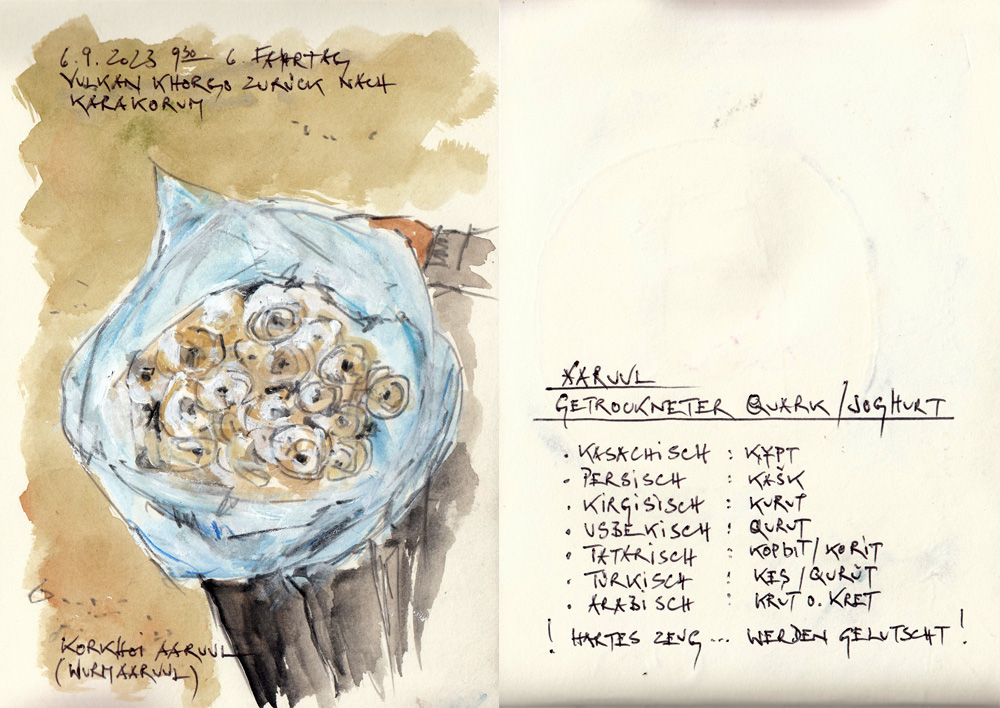 6.9.2023 9³⁰ 6. FAHRTAG
VULKAN KHORGO ZURÜCK NACH
KARAKORUM
KORKHOI AARUUL
(WURMAARUUL)
*AARUUL
GETROCKNETER QUARK / JOGHURT
· KASACHISCH : ҚҰРТ
· PERSISCH : KAŠK
· KIRGISISCH : KURUT
· USBEKISCH : QURUT
· TATARISCH : KOPБIT / KORIT
· TÜRKISCH : KEŞ / QURŬT
· ARABISCH : KRUT O. KRET
! HARTES ZEUG ... WERDEN GELUTSCHT !